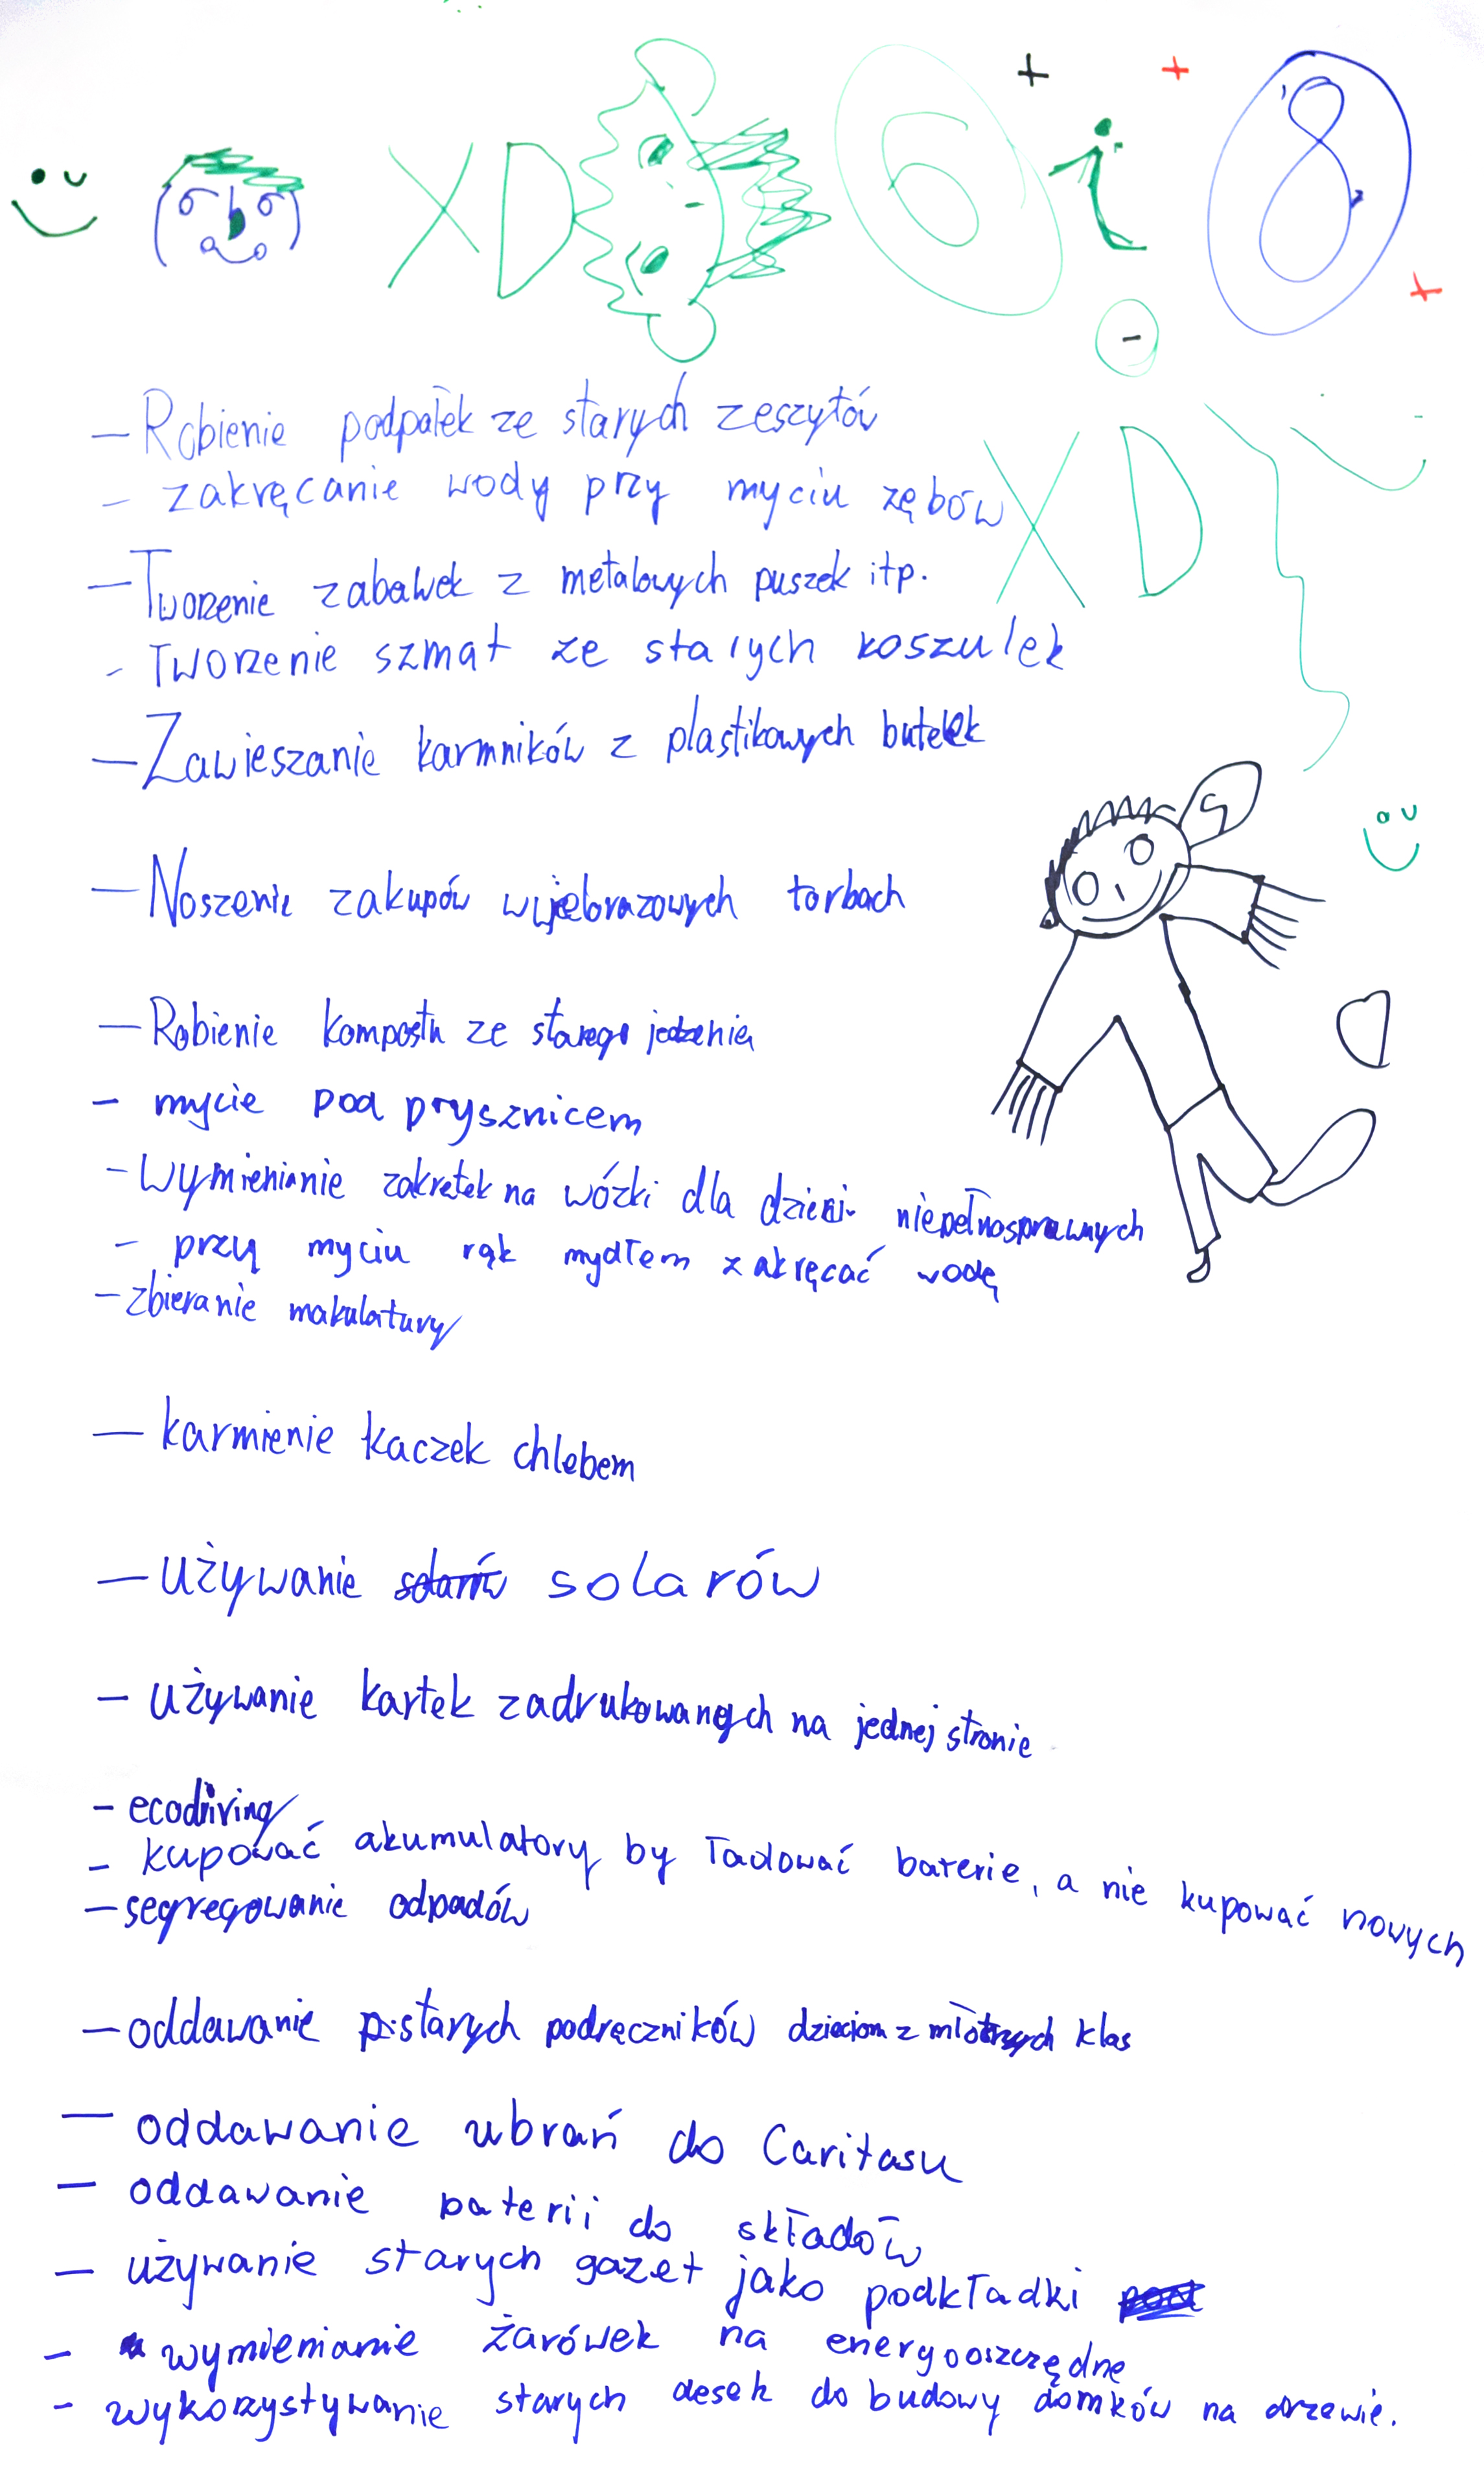 XD 6 i 8
- Robienie podpałek ze starych zeszytów
- zakręcanie wody przy myciu zębów
XD
- Tworzenie zabawek z metalowych puszek itp.
- Tworzenie szmat ze starych koszulek
- Zawieszanie karmników z plastikowych butelek
- Noszenie zakupów w torbach
- Robienie kompostu ze starego jedzenia
- mycie pod prysznicem
- Wymienianie zakrętek na wózki dla dzieci niepełnosprawnych
- przy myciu rąk mydłem zakręcać wodę
- zbieranie makulatury
- karmienie kaczek chlebem
- używanie solarów
- używanie kartek zadrukowanych na jednej stronie
- ecodriving
- kupować akumulatory by ładować baterie, a nie kupować nowych
- segregowanie odpadów
- oddawanie starych podręczników dzieciom z młotszych klas
- oddawanie ubrań do Caritasu
- oddawanie baterii do składów
- używanie starych gazet jako podkładki
- wymienianie żarówek na energooszczędne
- wykorzystywanie starych desek do budowy domków na drzewie.